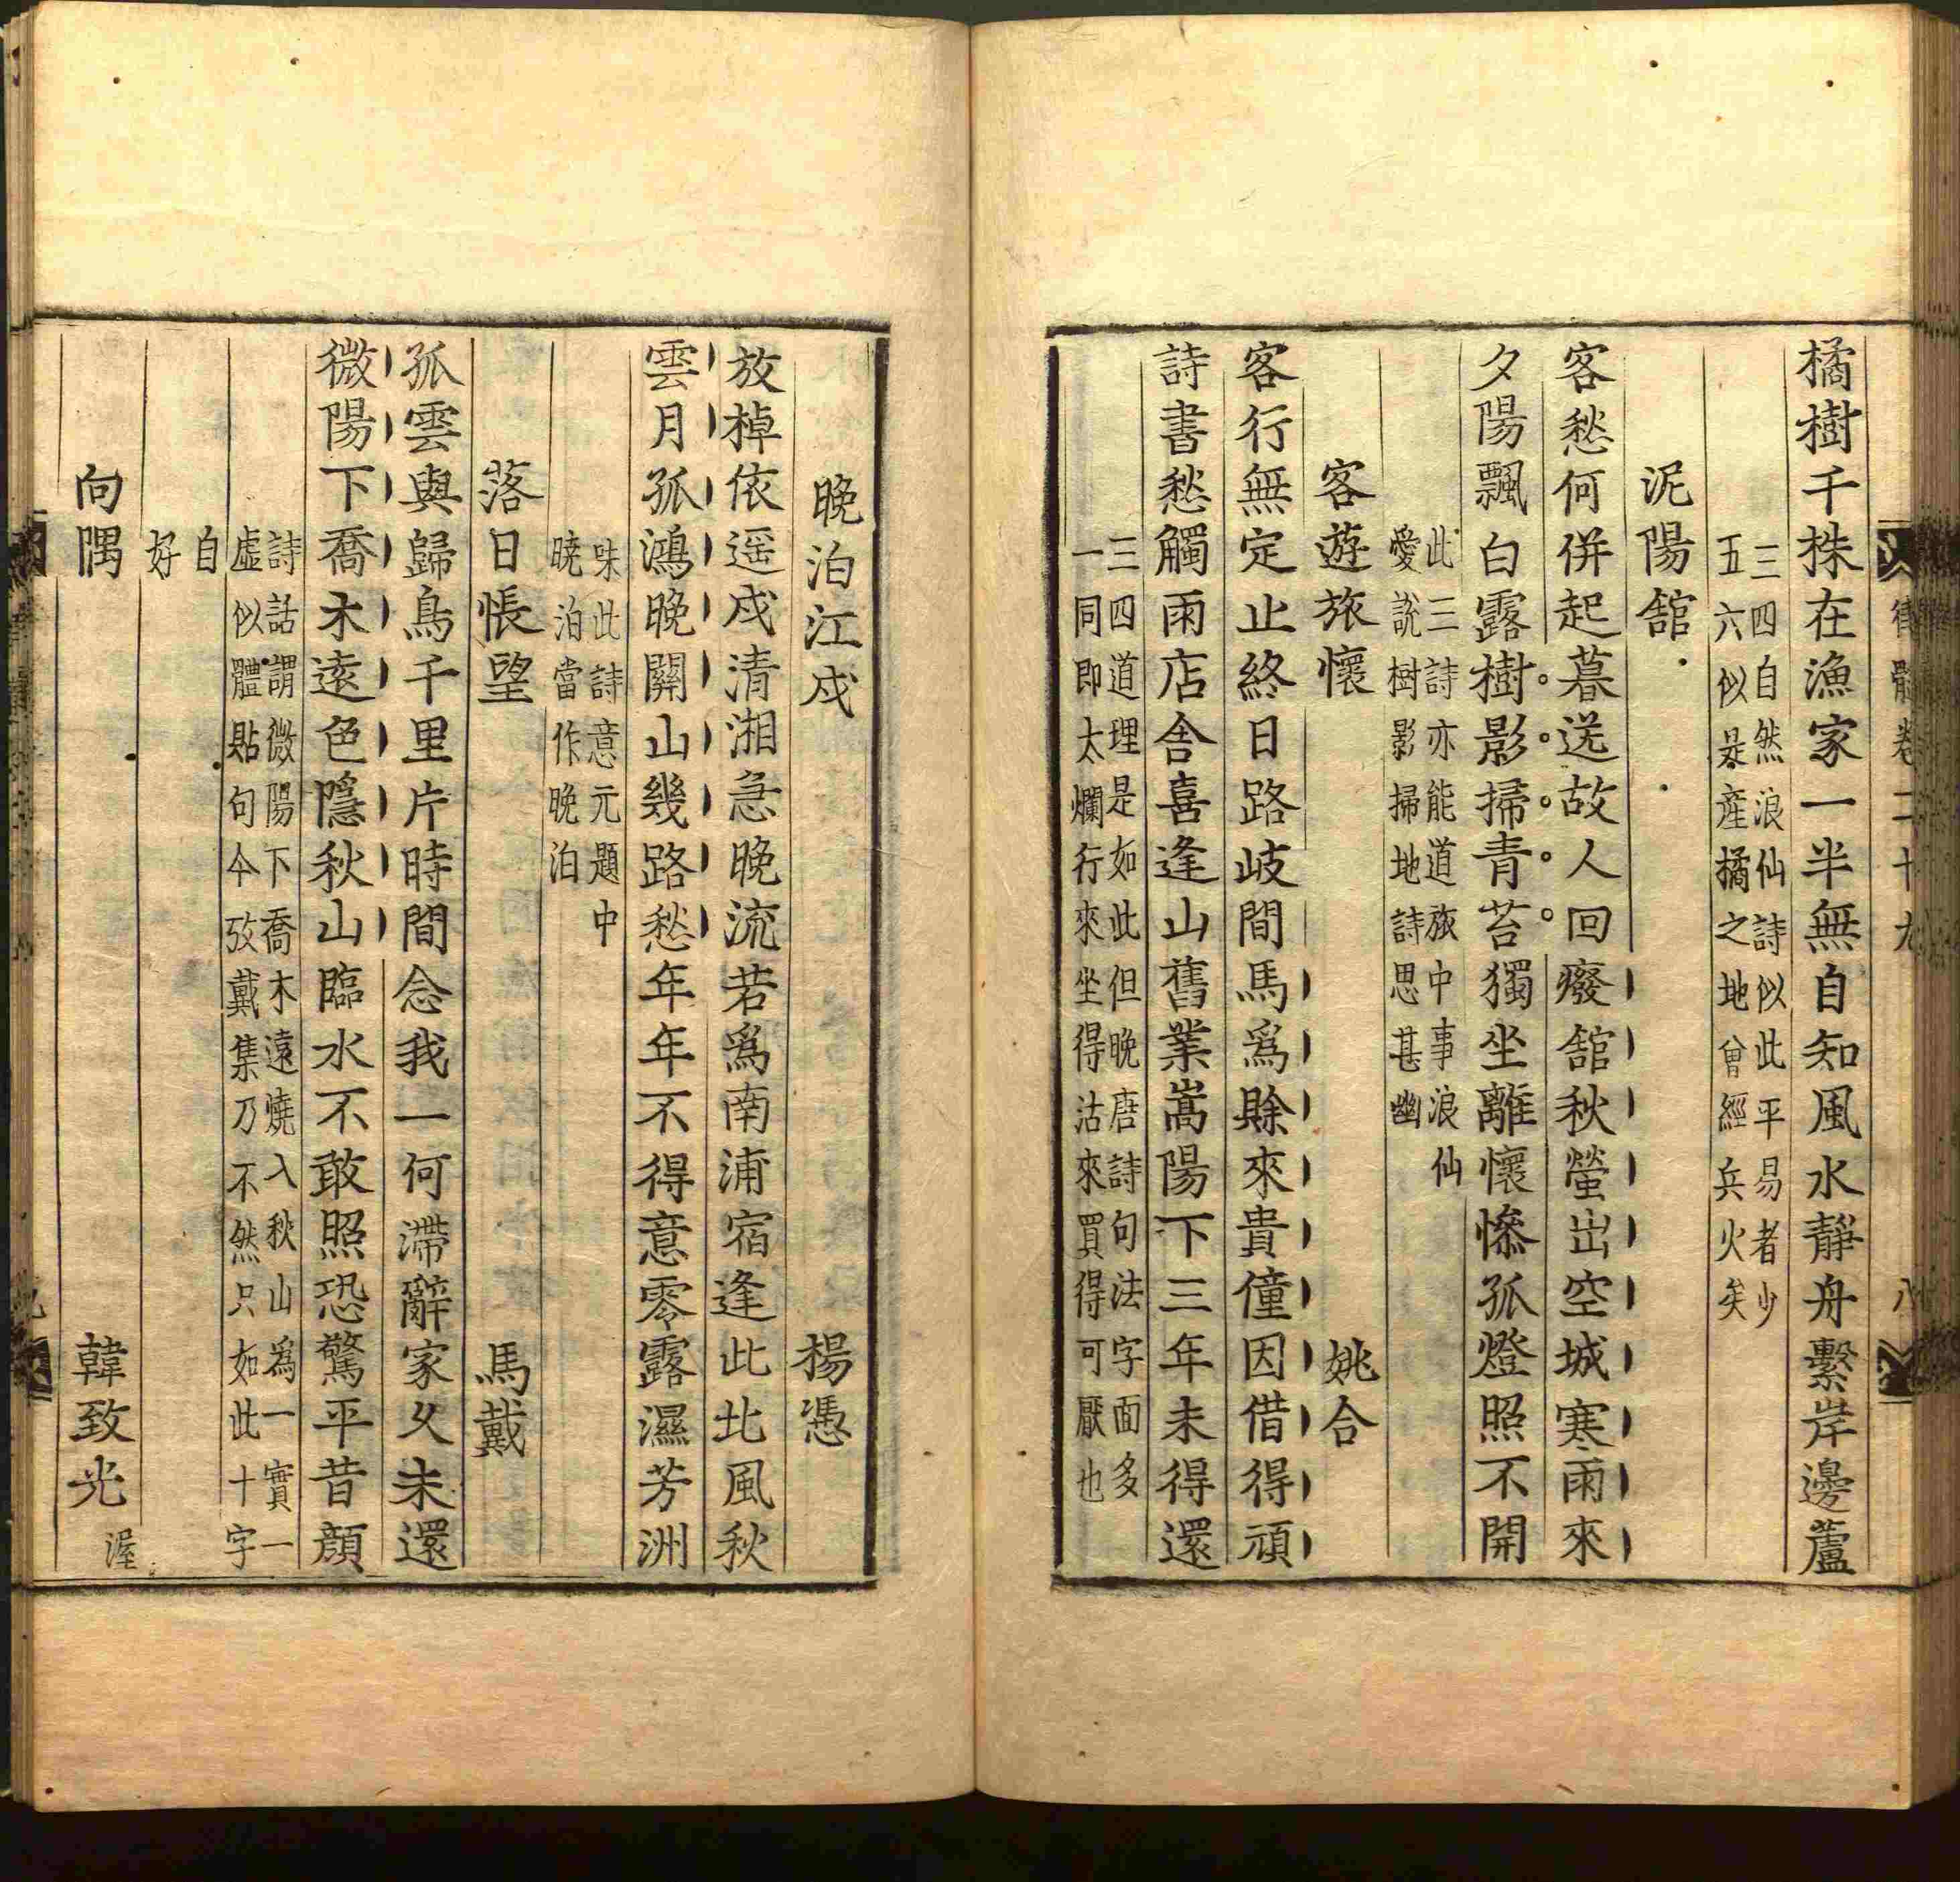 橘樹千株在漁家一半無自知風水靜舟繫岸邊蘆
三四自然浪仙詩似此平易者少
五六似是産橘之地曾經兵火矣
泥陽舘
客愁何併起暮送故人回癈舘秋螢出空城寒雨來
夕陽飄白露樹影掃青苔獨坐離懷慘孤燈照不開
此三詩亦能道旅中事浪仙
愛說樹影掃地詩思甚幽
客遊旅懷　姚合
客行無定止終日路岐間馬爲賒來貴僮因借得頑
詩書愁觸雨店舎喜逢山舊業嵩陽下三年未得還
三四道理是如此但晚唐詩句法字面多
一同即太爛行來坐得沽來買得可厭也
律體卷二十九　八
晚泊江戍　楊憑
放棹依遥戍清湘急晚流若爲南浦宿逢此北風秋
雲月孤鴻晚關山幾路愁年年不得意零露濕芳洲
味此詩意元題中
暁泊當作晚泊
落日悵望　馬戴
孤雲與歸鳥千里片時間念我一何滯辭家久未還
微陽下喬木遠色隱秋山臨水不敢照恐驚平昔顔
詩話謂微陽下喬木遠燒入秋山爲一實一
虛似體貼句今攷戴集乃不然只如此十字
自
好
向隅　韓致光　渥